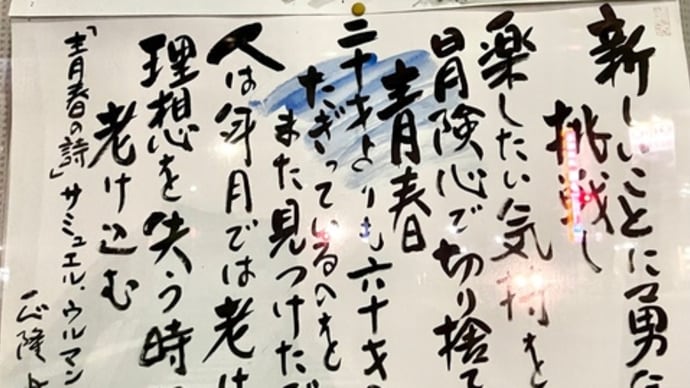 新しいことに勇た
挑戦し
楽したい気持を
冒険心で切り捨て
青春
二十才よりも六十才
たぎっているのを
また見つけた
人は年月では老け
理想を失う時
老け込む
「青春の詩」サミュエル,ウルマン
正隆